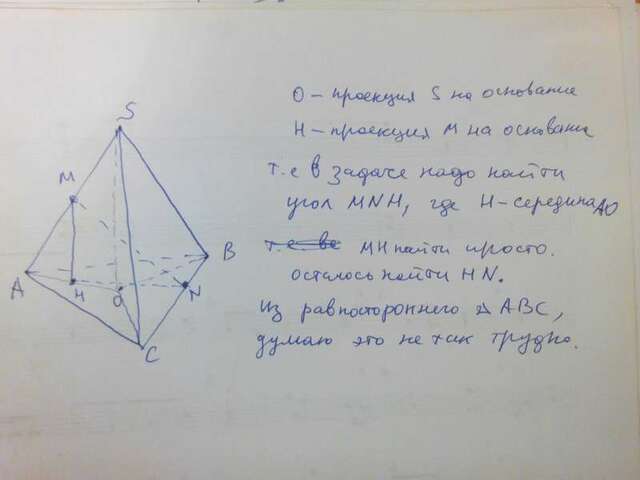 S
M
A
H
O
N
B
C
O – проекция S на основание
H – проекция M на основание
т.е в задаче надо найти
угол MNH, где H-середина AO
MH найти просто.
осталось найти HN.
Из равностороннего △ ABC,
думаю это не так трудно.